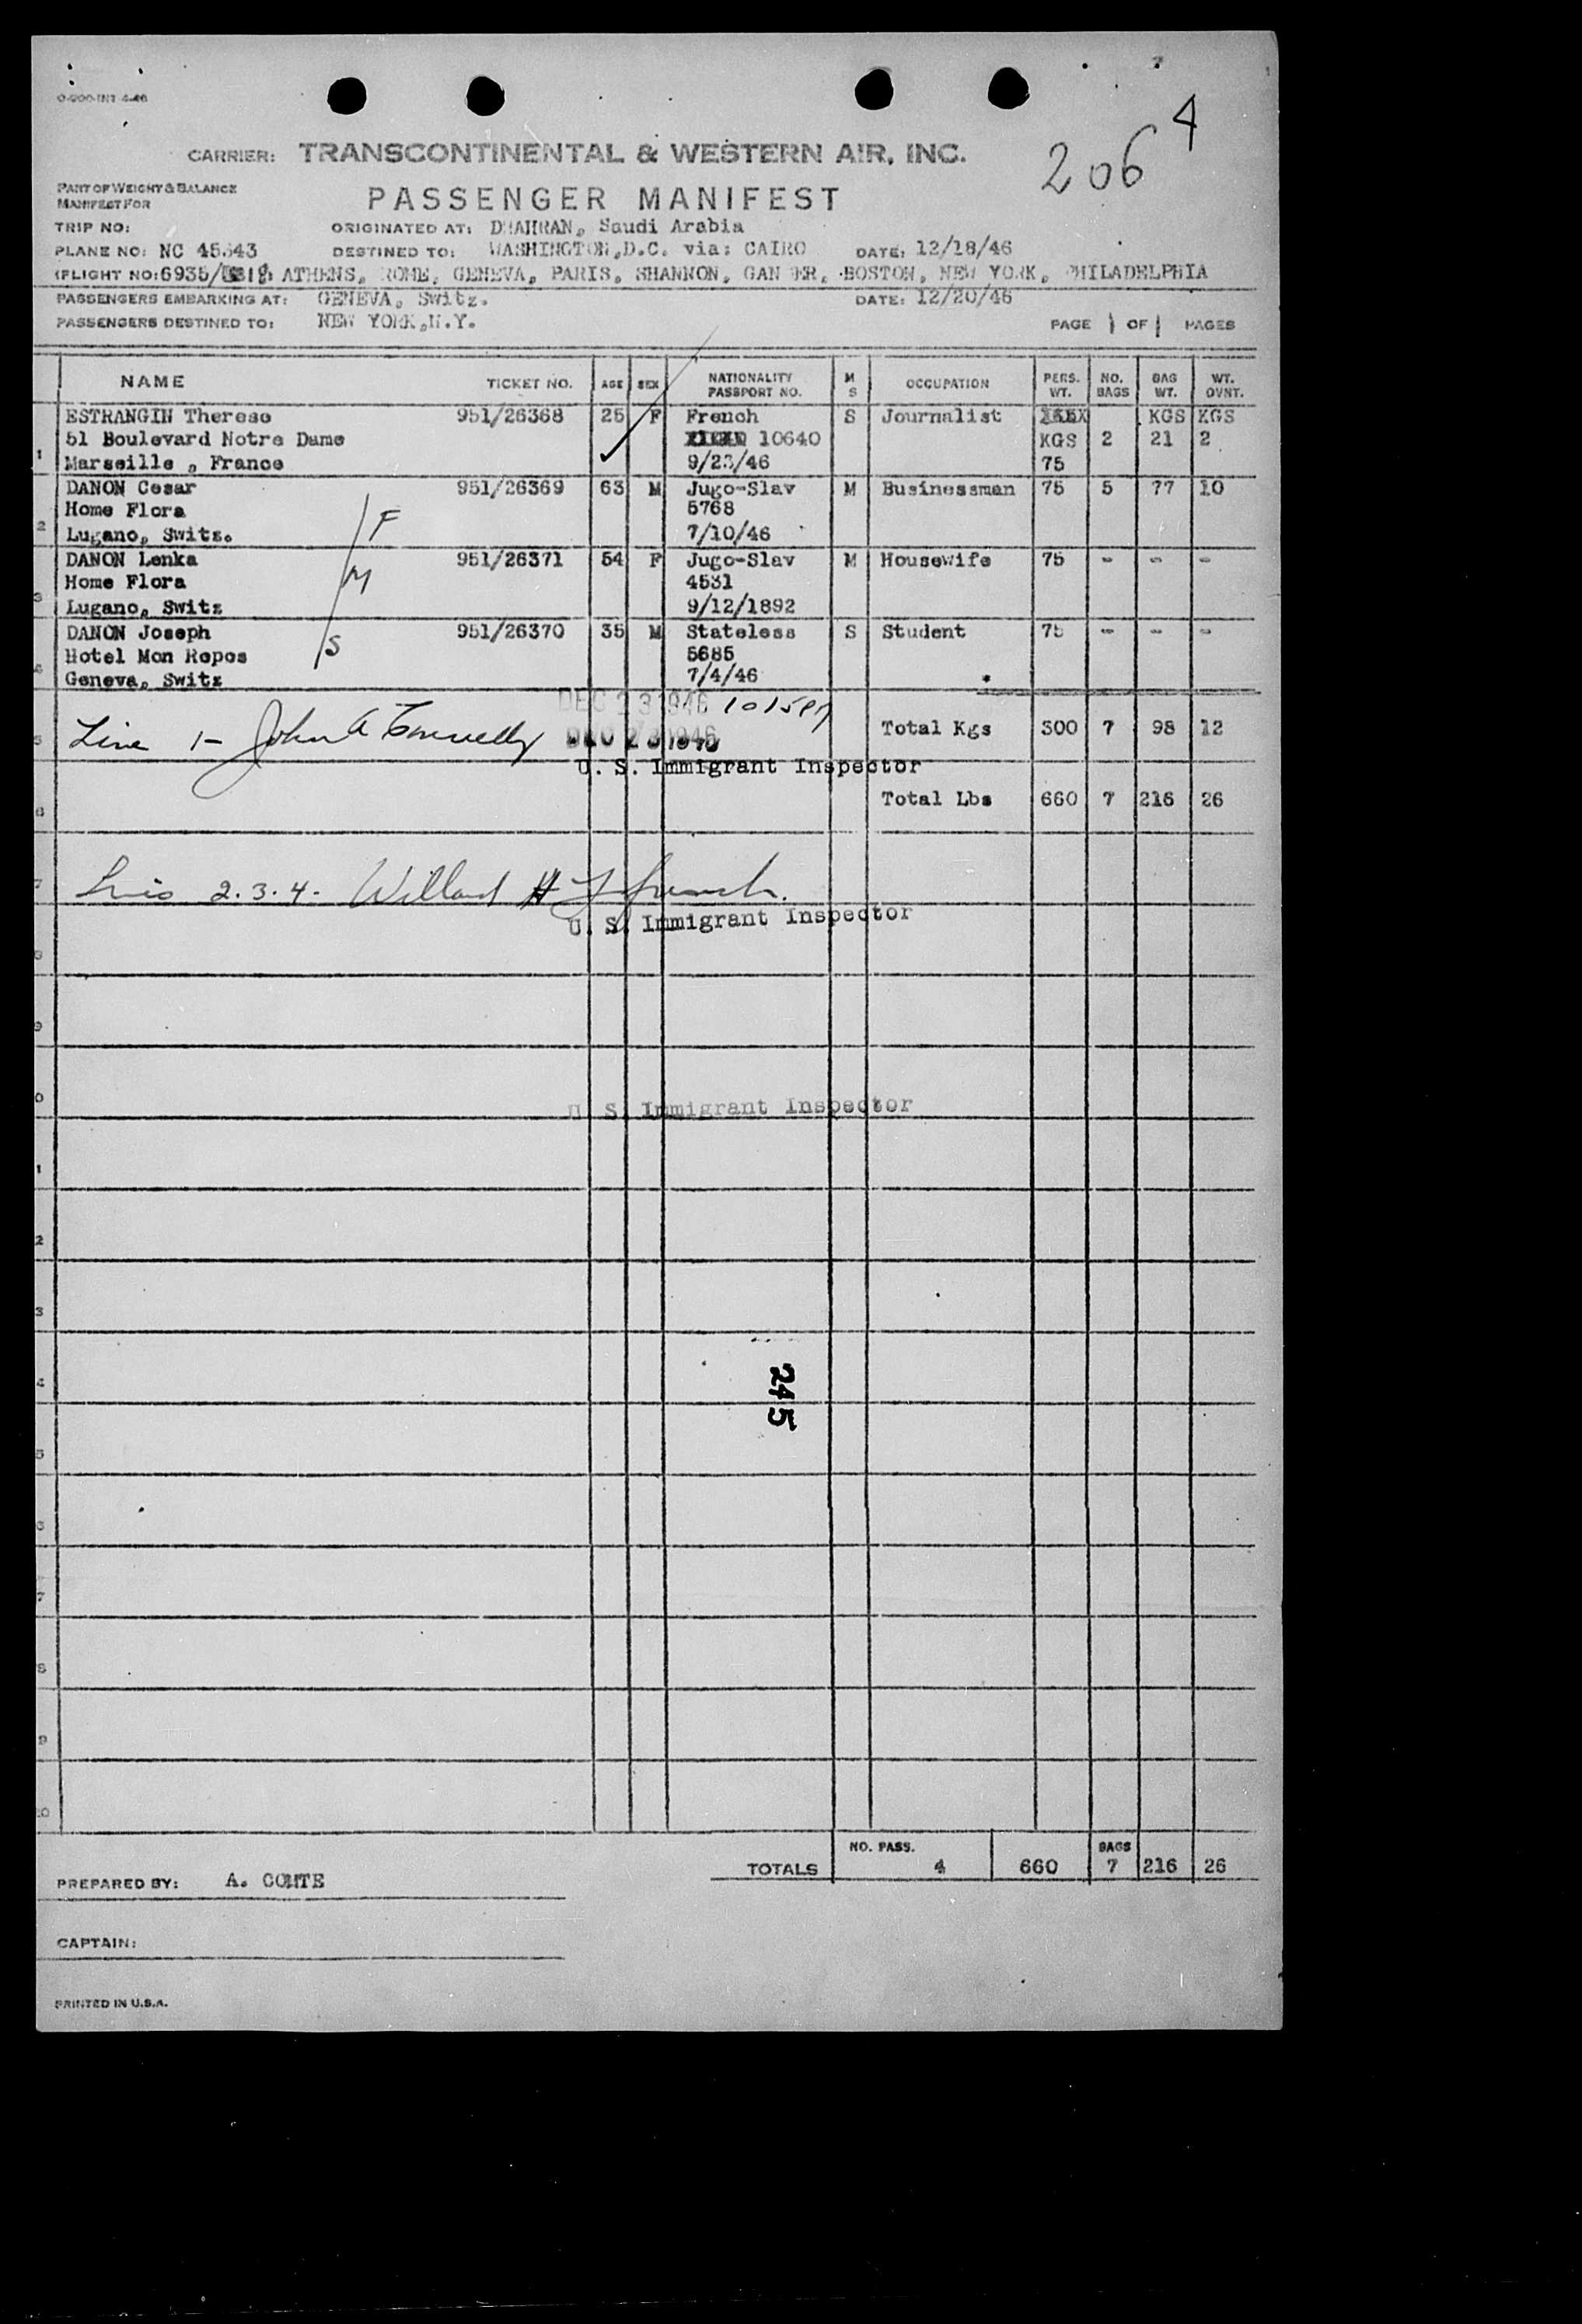 4
206
O-200-INT 4-46
CARRIER: TRANSCONTINENTAL & WESTERN AIR, INC.
PART OF WEIGHT & BALANCE
MANIFEST FOR
PASSENGER MANIFEST
TRIP NO: ORIGINATED AT: DHAHRAN, Saudi Arabia
PLANE NO: NC 45543 DESTINED TO: WASHINGTON,D.C. via: CAIRO DATE: 12/18/46
(FLIGHT NO: 6935/ ATHENS, ROME, GENEVA, PARIS, SHANNON, GANDER, BOSTON, NEW YORK, PHILADELPHIA
PASSENGERS EMBARKING AT: GENEVA, Switz. DATE: 12/20/46
PASSENGERS DESTINED TO: NEW YORK,N.Y. PAGE 1 OF 1 PAGES
NAME TICKET NO. AGE SEX NATIONALITY PASSPORT NO. M S OCCUPATION PERS. WT. NO. BAGS BAG WT. WT. OVNT.
ESTRANGIN Therese 951/26368 25 F French S Journalist KGS KGS
51 Boulevard Notre Dame 10640 KGS 2 21 2
1 Marseille , France 9/23/46 75
DANON Cesar 951/26369 63 M Jugo-Slav M Businessman 75 5 77 10
Home Flora F 5768
2 Lugano, Switz. 7/10/46
DANON Lenka 951/26371 54 F Jugo-Slav M Housewife 75 - - -
Home Flora M 4531
3 Lugano, Switz 9/12/1892
DANON Joseph 951/26370 35 M Stateless S Student 75 - - -
Hotel Mon Repos S 5685
4 Geneva, Switz 7/4/46
DEC 23 1946 1015PM
5 Line 1- John A Connelly DEC 23 1946 Total Kgs 300 7 98 12
U. S. Immigrant Inspector
6 Total Lbs 660 7 216 26
7 2.3.4- Willard H
U. S. Immigrant Inspector
8
9
0
U. S. Immigrant Inspector
1
2
3
245
4
5
6
7
8
9
20
NO. PASS. BAGS
TOTALS 4 660 7 216 26
PREPARED BY: A. COMTE
CAPTAIN:
PRINTED IN U.S.A.